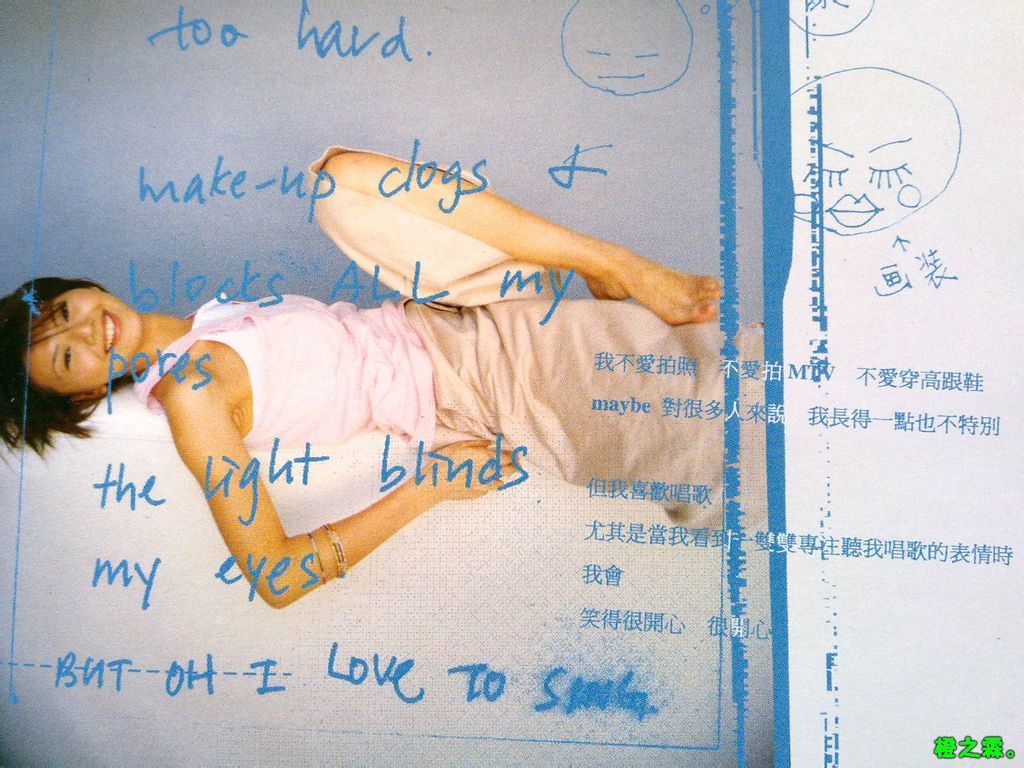 too hard.
make-up clogs &
blocks ALL my
pores
the light blinds
my eyes.
BUT OH I LOVE TO
画裝
我不愛拍照 不愛拍MTV 不愛穿高跟鞋
maybe 對很多人來說 我長得一點也不特別
但我喜歡唱歌
尤其是當我看到一雙雙專注聽我唱歌的表情時
我會
笑得很開心 很開心
橙之霖。